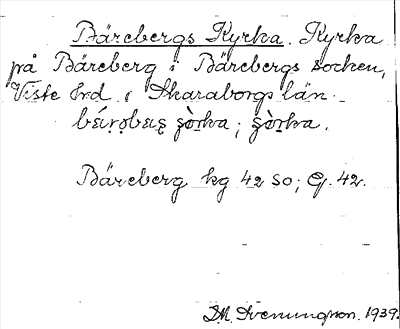 Bärebergs Kyrka. Kyrka
på Bäreberg i Bärebergs socken,
Viste hrd i Skaraborgs län.
Bäreberg kg 42 SO; G. 42.
1939.